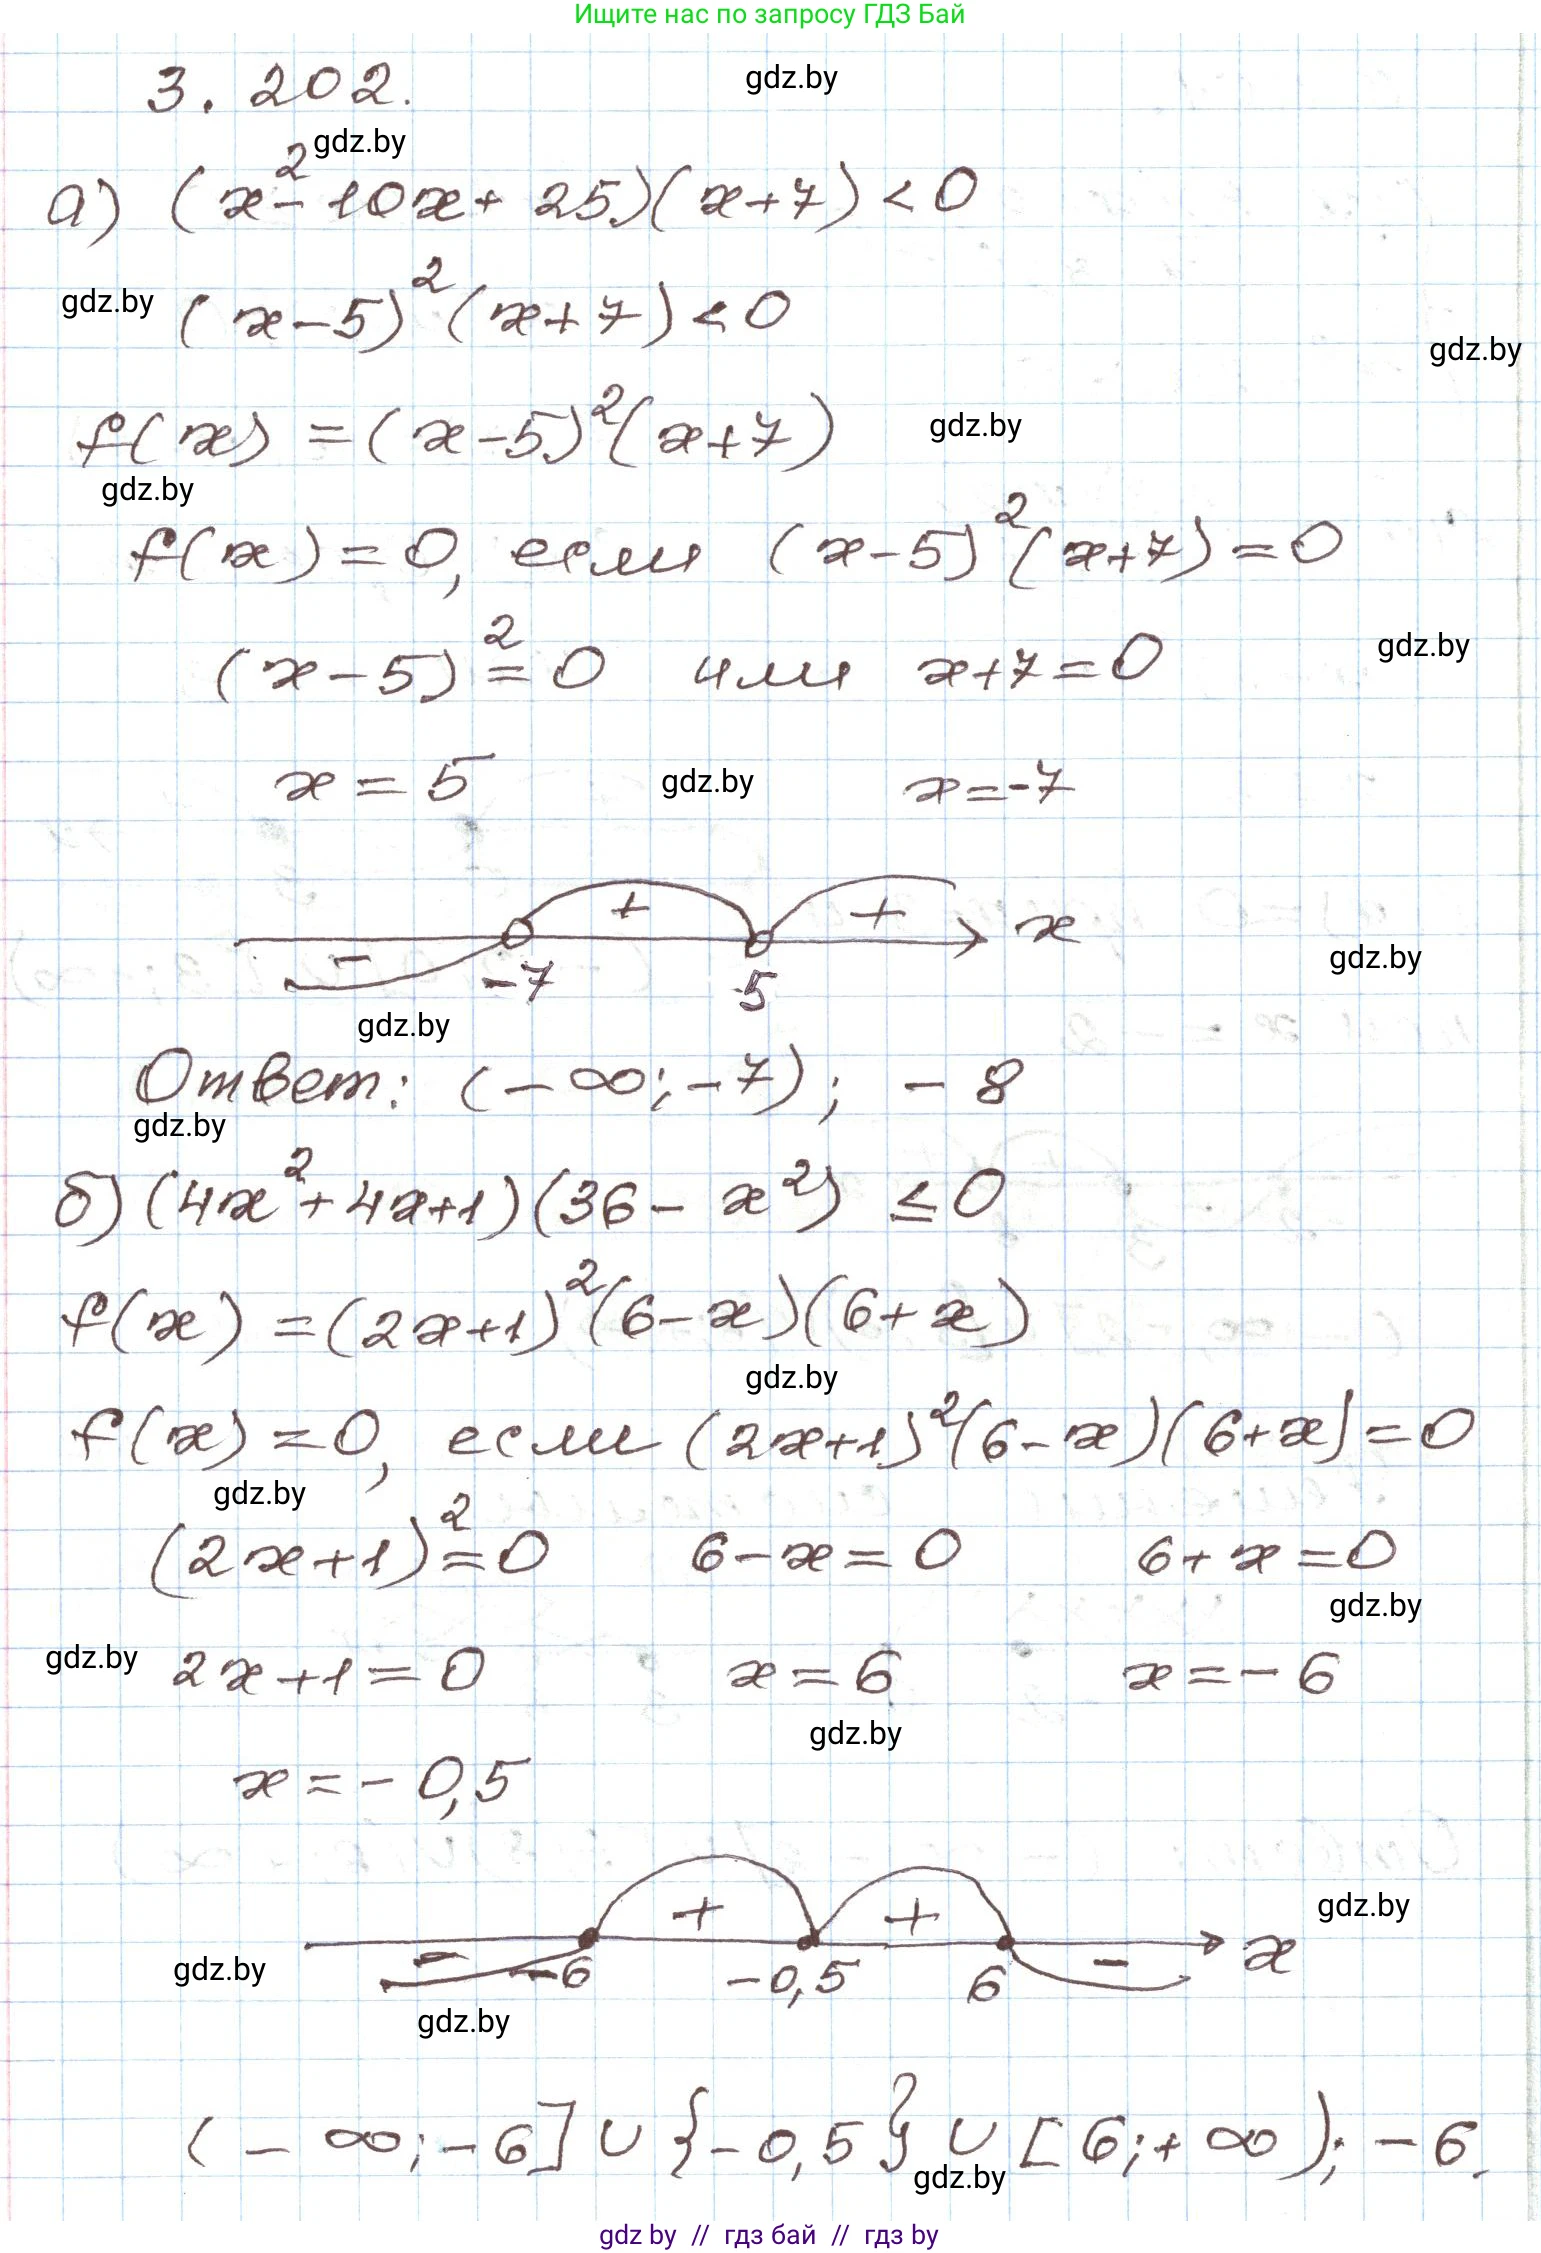 Ищите нас по запросу ГДЗ Бай
3.202.
gdz.by
gdz.by
а) (x²-10x+25)(x+7)<0
gdz.by
(x-5)²(x+7)<0
gdz.by
f(x)=(x-5)²(x+7)
gdz.by
gdz.by
f(x)=0, если (x-5)²(x+7)=0
(x-5)²=0 или x+7=0
gdz.by
x=5
gdz.by
x=-7
- + + x
-7 5
gdz.by
gdz.by
Ответ: (-∞;-7); -8
gdz.by
б) (4x²+4x+1)(36-x²)≤0
f(x)=(2x+1)²(6-x)(6+x)
gdz.by
f(x)=0, если (2x+1)²(6-x)(6+x)=0
gdz.by
(2x+1)²=0 6-x=0 6+x=0
gdz.by
gdz.by
2x+1=0 x=6 x=-6
gdz.by
x=-0,5
gdz.by
- + + - x
-6 -0,5 6
gdz.by
gdz.by
(-∞;-6]∪{-0,5}∪[6;+∞); -6.
gdz.by
gdz by // гдз бай // гдз by